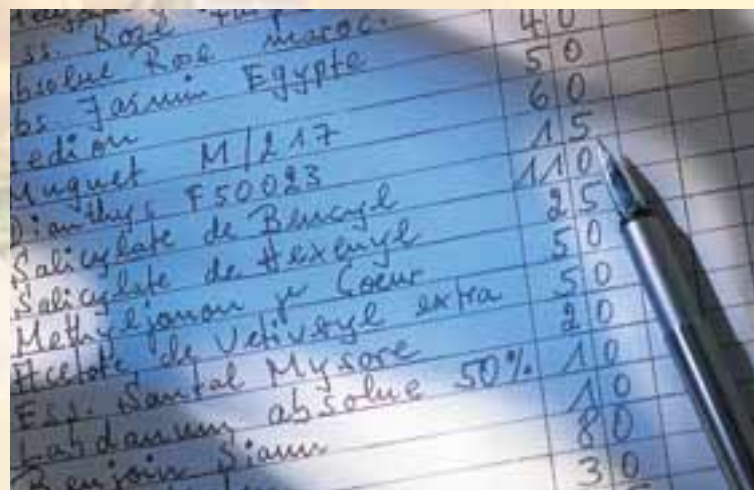 Ess. Rose
Absolue Rose maroc.
Abs. Jasmin Egypte 40
Hedion 50
Muguet M/217 60
Dianthys F50023 15
Salicylate de Bencyl 110
Salicylate de Hexenyl 25
Methyljonon γ Coeur 50
Acetate de Vetiveryl extra 50
Ess. Santal Mysore 20
Labdanum absolue 50% 10
Benjoin Siam 10
80
30